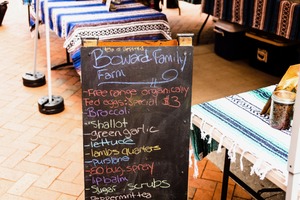 Boward Family
Farm
-Free range organically
Fed eggs: Special $3
-Broccoli
-Shallot
-green garlic
-lettuce
-lambs quarters
-purslane
-bug spray
-lip balm
-Sugar scrubs
-Peppermint tea